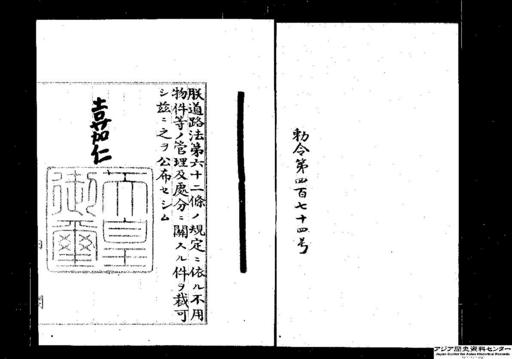 勅令第四百七十四号
朕道路法第六十二條ノ規定ニ依ル不用
物件等ノ管理及處分ニ關スル件ヲ裁可
シ茲ニ之ヲ公布セシム
嘉仁
天皇御璽
アジア歴史資料センター
Japan Center for Asian Historical Records